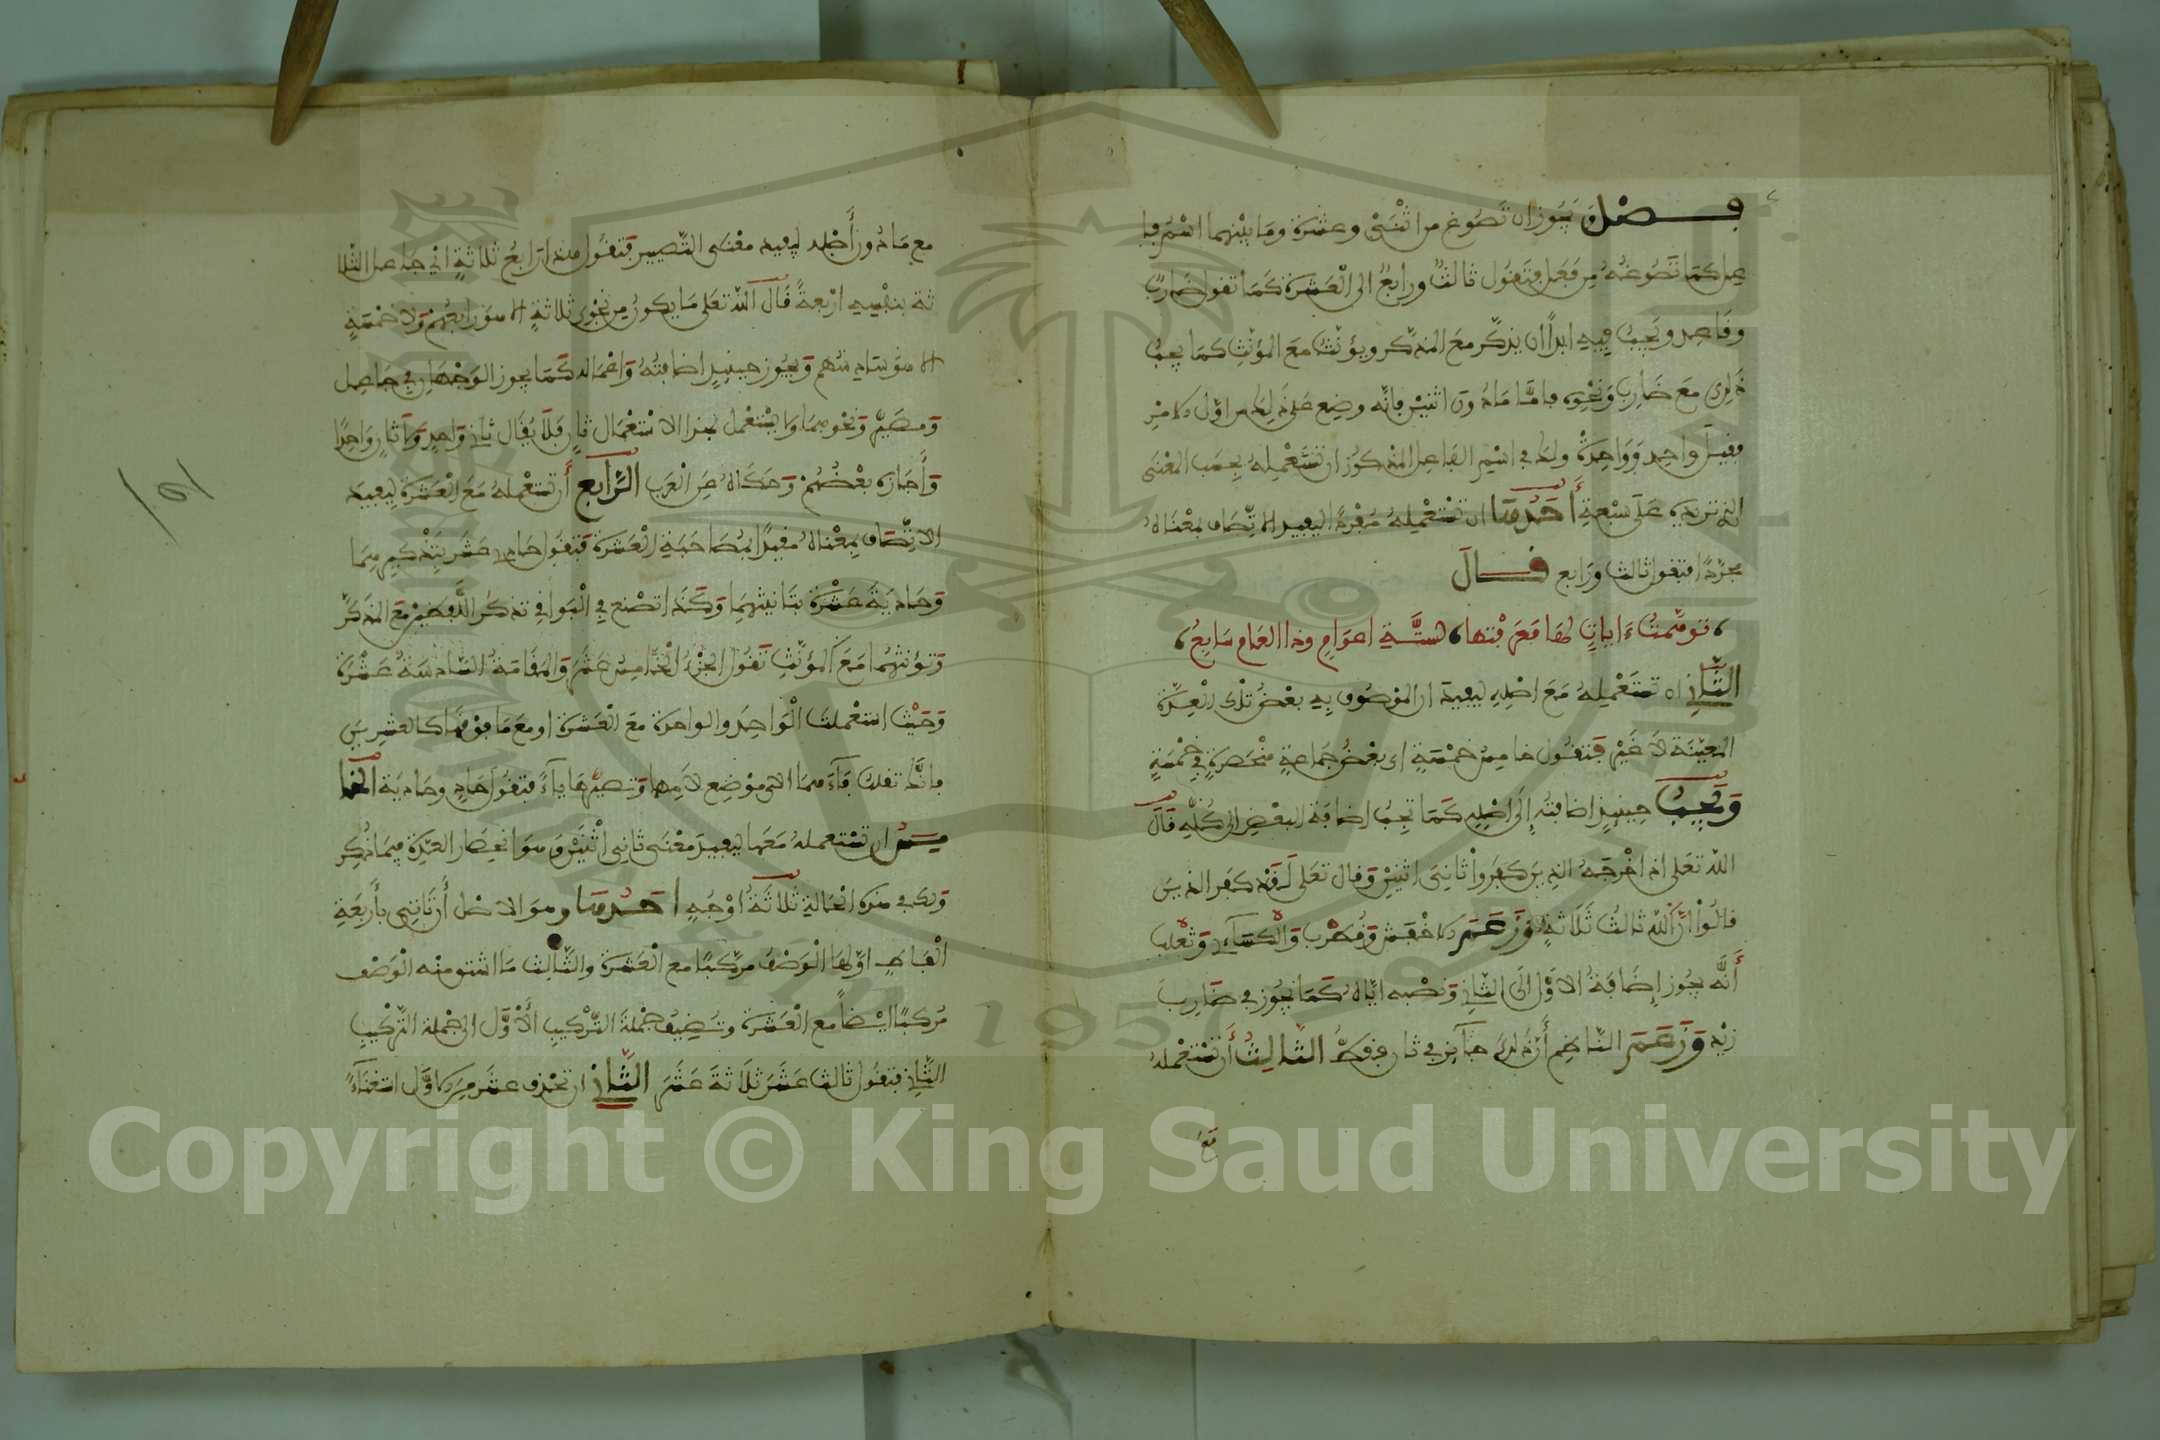 فصل يجوز ان تصوغ من اثنين وعشرة وما بينهما اسم فا
عل كما تصوغه من فعل فتقول ثالث ورابع الى العشرة كما تقول ضارب
وقاعد ويجب فيه ابدا ان يذكر مع المذكر ويؤنث مع المؤنث كما يجب
ذلك مع ضارب ونحوه فاما ما دون اثنين فانه وضع على ذلك من اول الامر
فقيل واحد وواحدة ولك في اسم الفاعل المذكور ان تستعمله بحسب المعنى
الذي تريده على سبعة أحدها ان تستعمله مفردا ليفيد الاتصاف بمعناه
مجردا فتقول ثالث ورابع قال
توهمت ءايات لها فعرفتها، لستة اعوام وذا العام سابع،
الثاني ان تستعمله مع اصله ليفيد ان الموصوف به بعض تلك العدة
المعينة لا غير فتقول خامس خمسة اي بعض جماعة منحصرة في خمسة
ويجب حينئذ اضافته إلى اصله كما تجب اضافة البعض الى كله قال
الله تعلى اذ اخرجه الذين كفروا ثاني اثنين وقال تعلى لقد كفر الذين
قالوا ان الله ثالث ثلاثة وزعم الاخفش وقطرب والكساءي وثعلب
أنه يجوز إضافة الاول الى الثاني ونصبه اياه كما يجوز في ضارب
زيد وزعم الناظم أن ذلك جائز في ثان فقط الثالث أن تستعمله
مع
مع ما دون أصله ليفيد معنى التصيير فتقول هذا رابع ثلاثة اي جاعل الثلا
ثة بنفسه اربعة قال الله تعلى ما يكون من نجوى ثلاثة الا هو رابعهم ولا خمسة
الا هو سادسهم ويجوز حينئذ اضافته واعماله كما يجوز الوجهان في جاعل
ومصير ونحوهما ولا يستعمل بهذا الاستعمال ثان فلا يقال ثاني واحد ولا ثان واحدا
وأجازه بعضهم وحكاه عن العرب الرابع أن تستعمله مع العشرة ليفيد
الاتصاف بمعناه مقيدا بمصاحبة العشرة فتقول حادي عشر بتذكيرهما
وحادية عشرة بتانيثهما وكذا تصنع في البواقي تذكر اللفظين مع المذكر
وتؤنثهما مع المؤنث تقول الجزء الخامس عشر والمقامة السادسة عشرة
وحيث استعملت الواحد والواحدة مع العشرة او مع ما فوقها كالعشرين
فانك تقلب فاءهما الى موضع لامهما وتصيرها ياء فتقول حاد وحادية الخا
مس ان تستعمله معها ليفيد معنى ثاني اثنين وهو انحصار العدة فيما ذكر
ولك في هذه الحالة ثلاثة اوجه احدها وهو الاصل أن تاتي بأربعة
الفاظ اولها الوصف مركبا مع العشرة والثالث ما اشتق منه الوصف
مركبا ايضا مع العشرة وتضيف جملة التركيب الأول الى جملة التركيب
الثاني فتقول ثالث عشر ثلاثة عشر الثاني ان تحذف عشر من الاول استغناء
١٥١
Copyright © King Saud University
1957